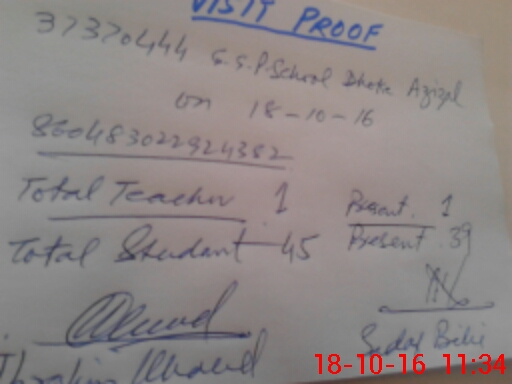 VISIT PROOF
37370444 G.G.P.School Dhoke
on 18-10-16
860483022924382
Total Teacher 1 Present. 1
Total Student 45 Present. 39
Ibrahim
Bibi
18-10-16 11:34